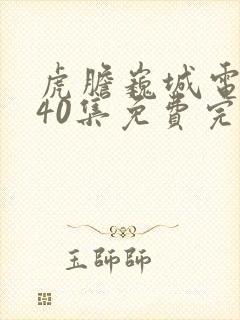 虎膽巍城電
40集免費完
玉師師